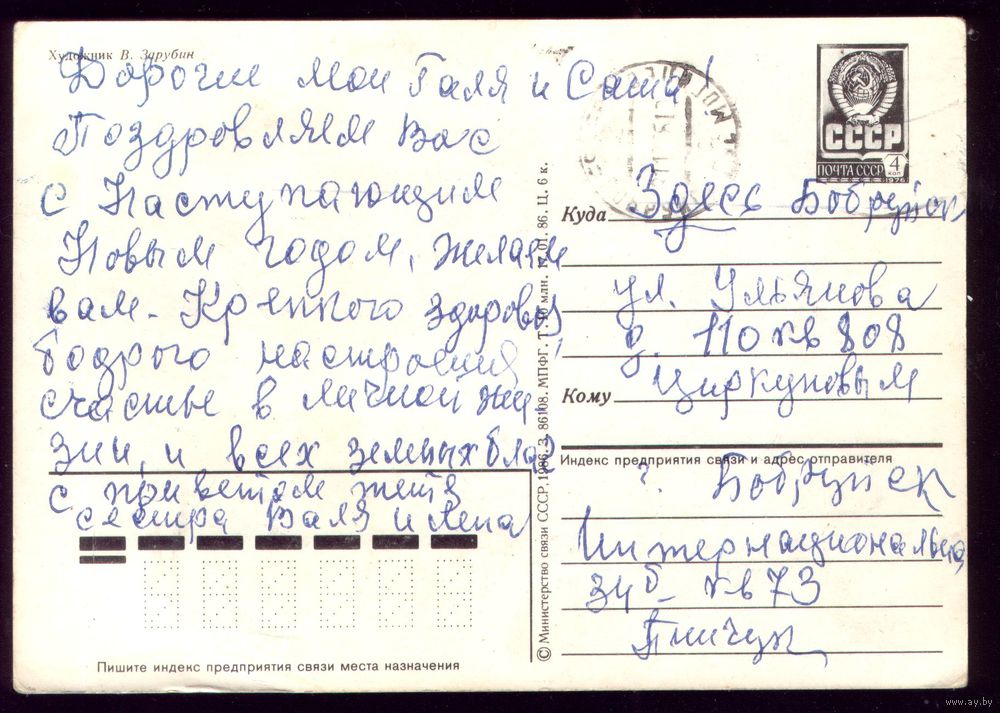 Художник В. Зарубин
Дорогии мои Галя и Саша!
Поздровляем Вас
с Наступающим
Новым годом, желаем
вам - Крепкого здоровья,
бодрого настроения,
счастье в личной жи
зни, и всех земных благ
с приветом тётя
сестра Валя и Лена
СССР
ПОЧТА СССР 4 КОП
1976
Куда Здесь Бобруйск
ул. Ульянова
д. 110 кв 808
Кому Циркуновым
Индекс предприятия связи и адрес отправителя
г. Бобруйск
Интернациональная
34б - кв 73
© Министерство связи СССР. 1986. З. 86108. МПФГ. Т. 10 млн. 17.01.86. Ц. 6 к.
Пишите индекс предприятия связи места назначения
www.ay.by